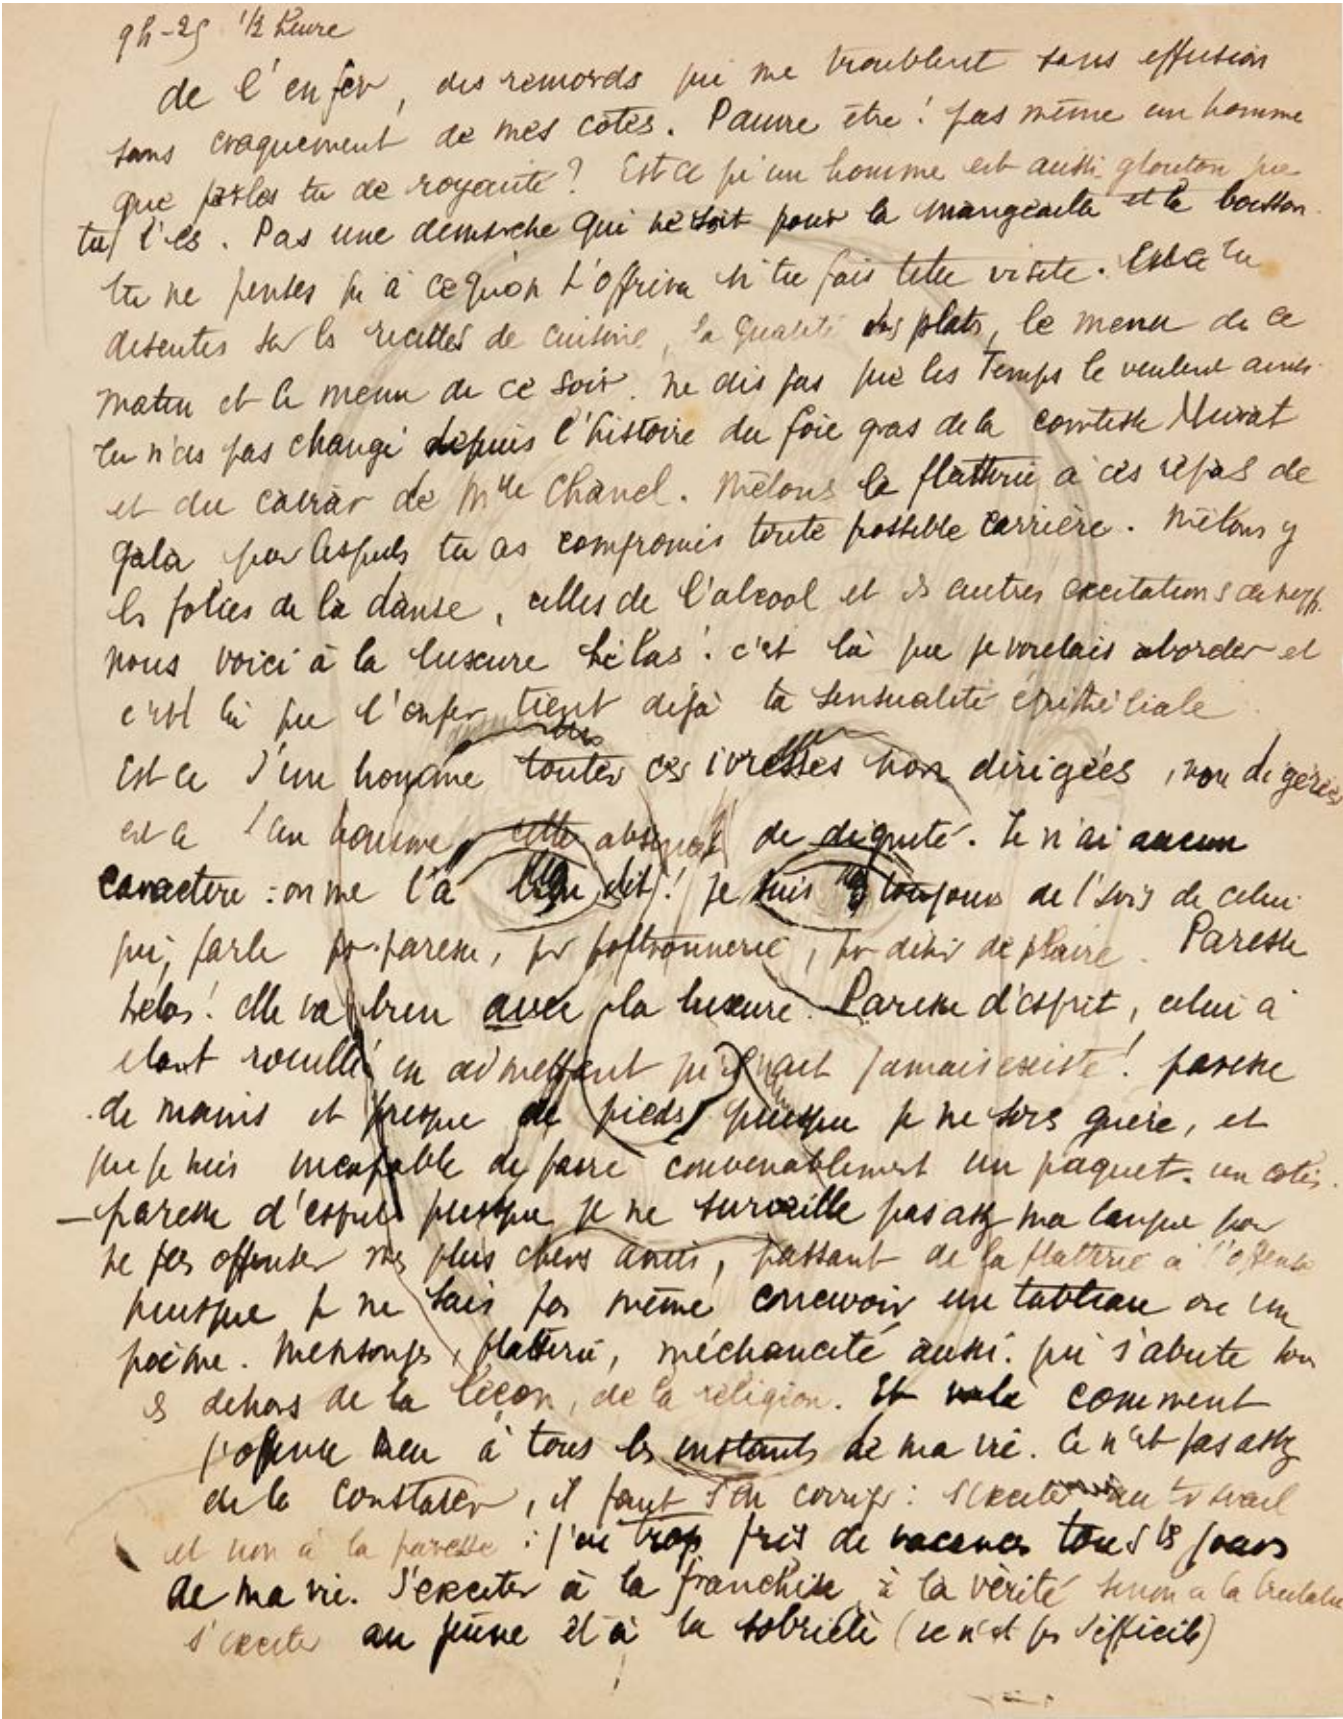 9h-25 1/2 heure
de l'enfer, des remords qui me troublent sans effusion
sans craquement de mes cotes. Pauvre être! pas même un homme
que parles tu de royauté? Est ce qu'un homme est aussi glouton que
tu l'es. Pas une demarche qui ne soit pour la mangeaille et la boisson.
tu ne penses qu'à ce qu'on t'offrira si tu fais telle visite. Est ce tu
discutes sur les recettes de cuisine, la qualité des plats, le menu de ce
matin et le menu de ce soir. ne dis pas que les Temps le veulent ainsi.
tu n'as pas changé depuis l'histoire du foie gras de la comtesse Murat
et du caviar de Mlle Chanel. Mêlons la flatterie à ces repas de
gala pour lesquels tu as compromis toute possible carrière. Mêlons y
les folies de la danse, celles de l'alcool et les autres excitations
nous voici à la luxure hélas! c'est là que je voulais aborder et
c'est là que l'enfer tient déjà ta sensualité épithéliale.
Est ce d'un homme toutes ces ivresses non dirigées, non digérées
est ce d'un homme cette absence de dignité. Je n'ai aucun
caractere : on me l'a bien dit! je suis toujours de l'avis de celui
qui parle pr paresse, pr poltronnerie, pr désir de plaire. Paresse
helas! elle va bien avec la luxure. Paresse d'esprit, celui à
etant rouillé en admettant qu'il ait jamais existé! paresse
de mains et presque de pieds puisque je ne sors guère, et
que je suis incapable de faire convenablement un paquet. un colis.
— paresse d'esprit puisque je ne surveille pas assez ma langue pour
ne pas offenser mes plus chers amis, passant de la flatterie à l'offense
puisque je ne sais pas même concevoir un tableau ou un
poème. Mensonges, flatterie, méchanceté aussi. qui s'abrite sous
les dehors de la leçon, de la religion. Et voilà comment
j'offense Dieu à tous les instants de ma vie. Ce n'est pas assez
de le constater, il faut s'en corriger : s'exciter au travail
et non à la paresse : j'ai trop pris de vacances tous les jours
de ma vie. S'exciter à la franchise, à la vérité sinon a la
s'exciter au jeûne et à la sobriété (ce n'est pas difficile)